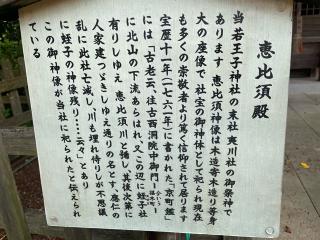 恵比須殿
当若王子神社の末社夷川社の御祭神で
あります 恵比須神像は木造寄木造り等身
大の座像で 社宝の御神体として祀られ現在
も多くの崇敬者より篤く信仰されて居ります
宝歴十一年(一七六一年)に書かれた「京町鑑」
には「古老云、往古西洞院中御門
に北山の下流あらはれ 又この辺に蛭子社
有りしゆえ 恵比須川と稱 其後次第に
人家建つゞきしゆえ通りの名とす。應仁の
乱に此社亡滅し、川も埋れ侍りしが不思議
に蛭子の神像残り……云々」とあり
この御神像が当社に祀られたと伝えられ
ている